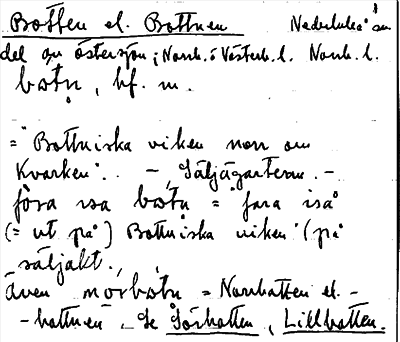 Botten el. Bottnen Nederluleå sn
del av östersjön i Norrb. o Västerb. l. Norrb. l.
botn, bf. m.
= "Bottniska viken norr om
Kvarken". - Säljägarterm. -
fòra isa bótn = "fara iså
(= ut på) Bottniska viken" (på
säljakt.,
Även mörbotn = Norrbotten el. -
- bottnen. Se Sörbotten, Lillbotten.